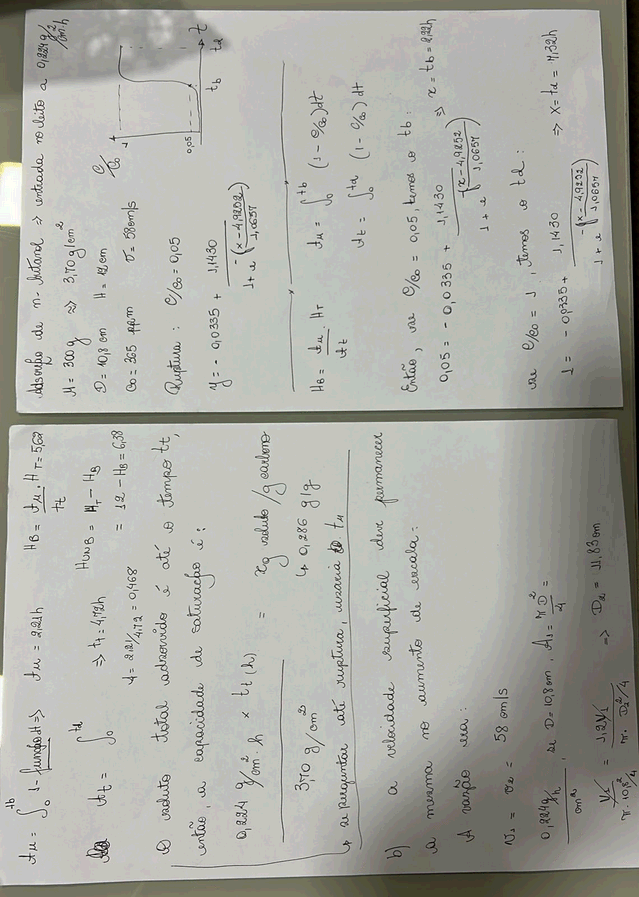 Adsorção de n-butanol => entrada no leito a 0,224 g/cm².h
M = 300g => 3,70 g/cm²
D = 10,8 cm H = 12 cm
C₀ = 365 ppm v = 58cm/s
Ruptura: C/C₀ = 0,05
y = - 0,0335 + 1,1430 / 1 + e^-(x-4,9252 / 1,0657)
C/C₀
0,05
tb td t
HB = tu/tt . HT
tu = ∫₀^tb (1 - C/C₀)dt
tt = ∫₀^td (1 - C/C₀) dt
Então, se C/C₀ = 0,05, temos o tb:
0,05 = - 0,0335 + 1,1430 / 1 + e^-(x-4,9252 / 1,0657) => x = tb = 2,22h
se C/C₀ = 1, temos o td:
1 = - 0,0335 + 1,1430 / 1 + e^-(x-4,9252 / 1,0657) => x = td = 7,32h
tu = ∫₀^tb 1 - função dt => tu = 2,21h
HB = tu/tt . HT = 5,62
tt = ∫₀^td => tt = 4,72h
HUNB = HT - HB
= 12 - HB = 6,38
= 2,21/4,72 = 0,468
O soluto total adsorvido é até o tempo tt,
então, a capacidade de saturação é:
0,224 g/cm².h x tt (h) / 3,70 g/cm² = xg soluto/g carbono
↳ 0,286 g/g
↳ se perguntar até ruptura, usaria tu
b) a velocidade superficial deve permanecer
a mesma no aumento de escala:
A vazão era:
v₁ = v₂ = 58 cm/s
0,224g/h / cm², se D = 10,8cm, A₁ = πD²/4 =
V₁ / π.10,8²/4 = 1,2V₁ / π.D₂²/4 => D₂ = 11,83cm